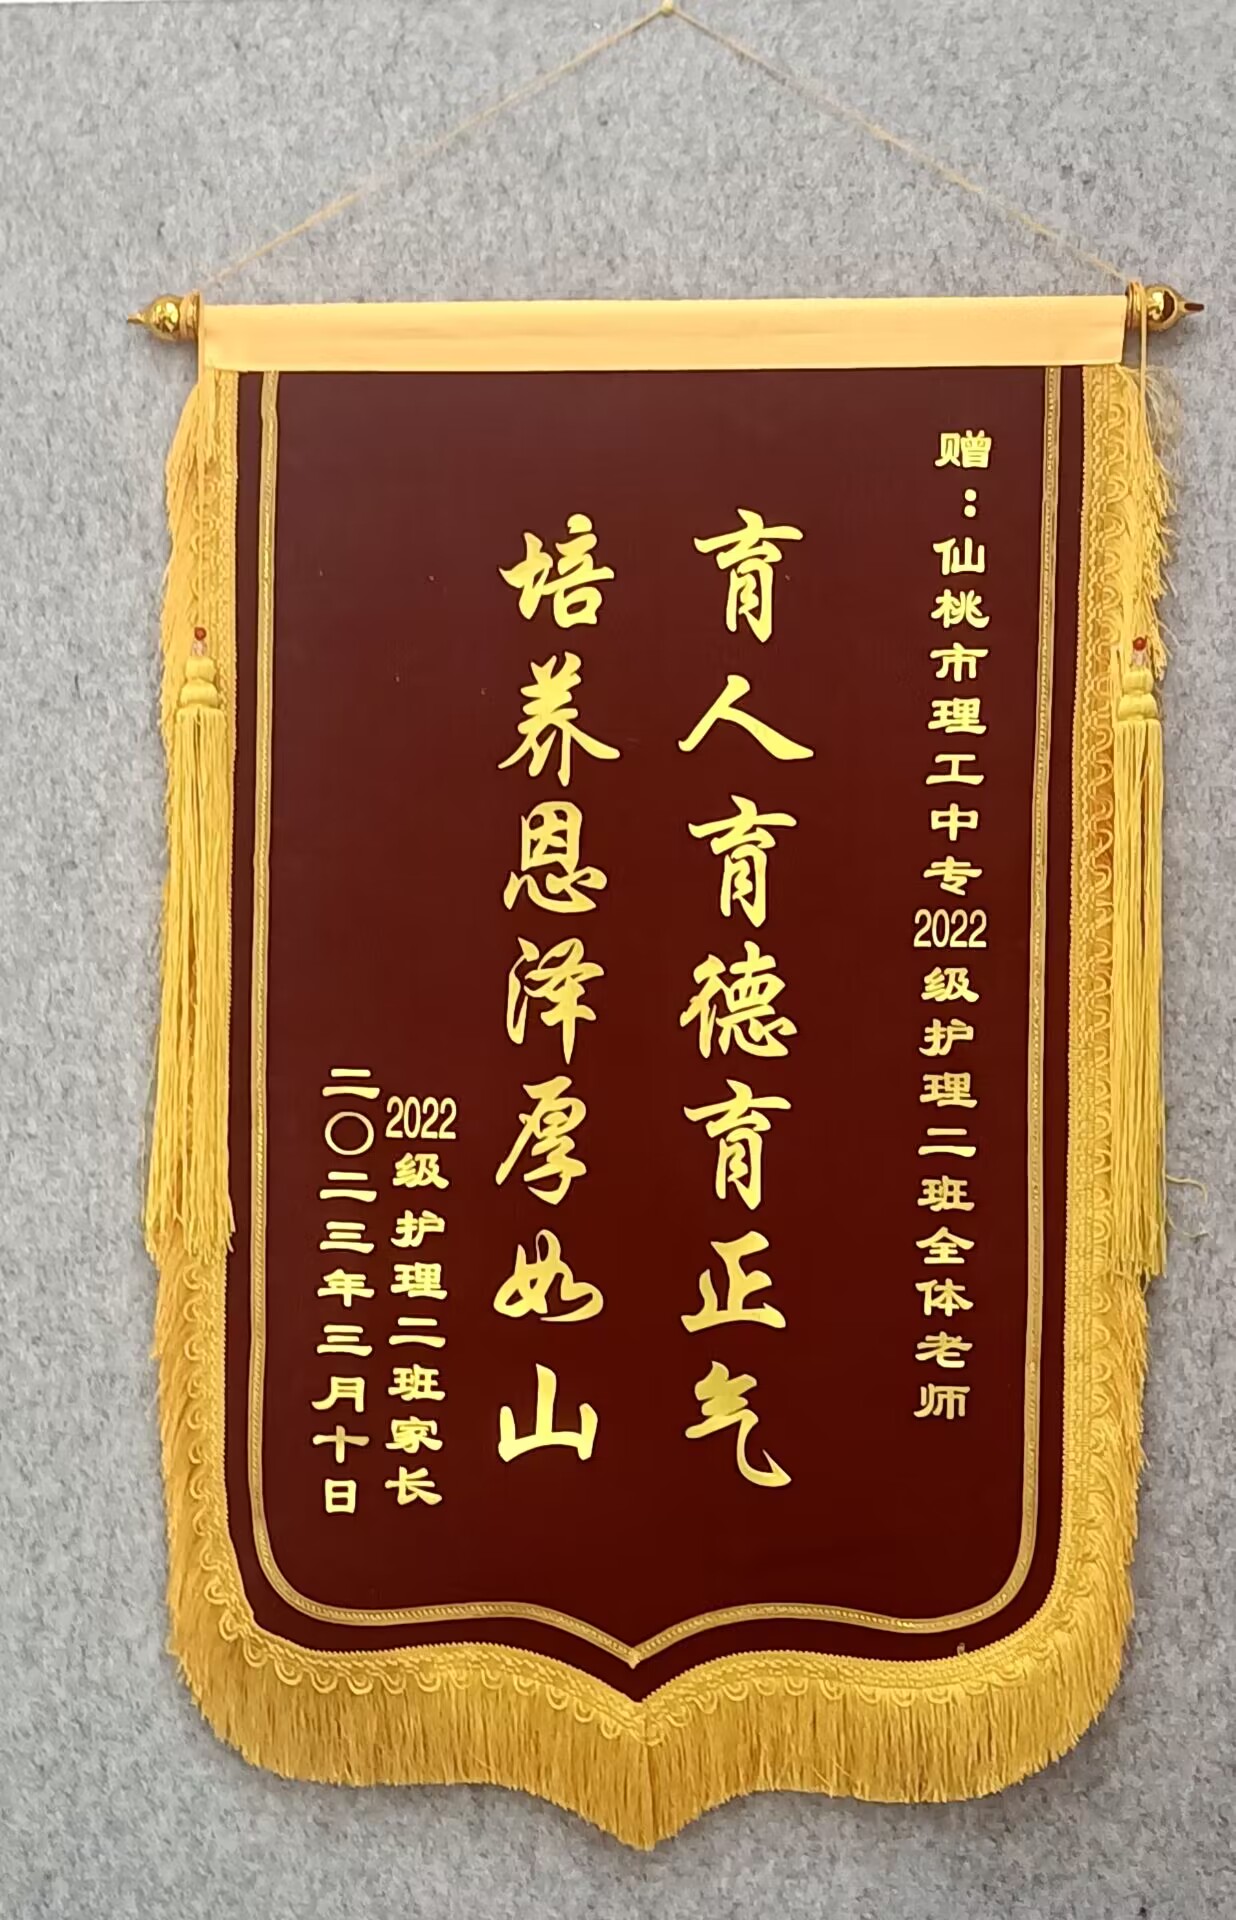 赠：仙桃市理工中专2022级护理二班全体老师
育人育德育正气
培养恩泽厚如山
2022级护理二班家长
二〇二三年三月十日